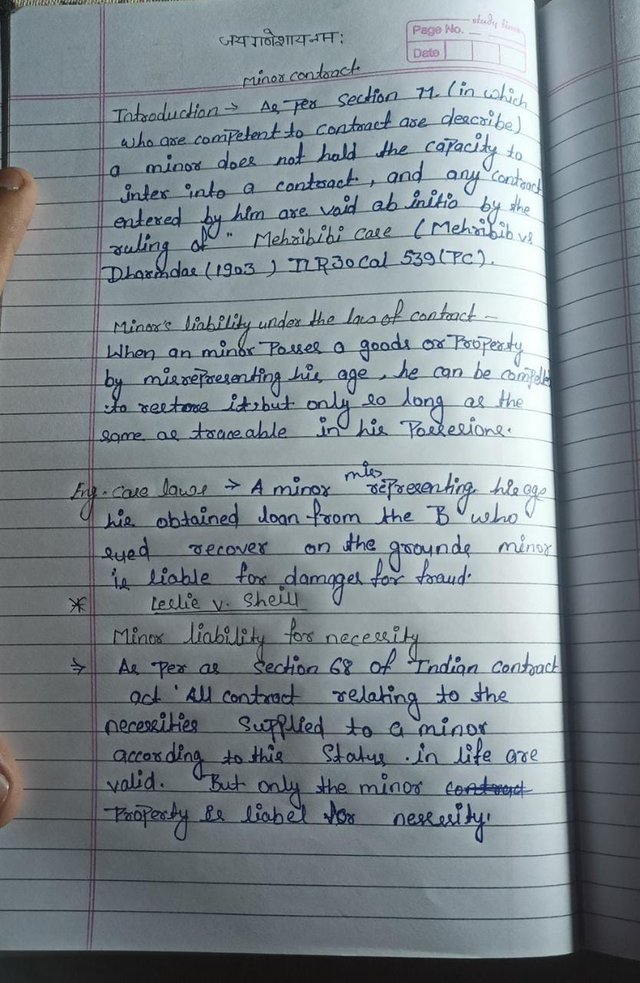 जय गणेशाय नमः
study time
Page No.
Date
Minor contract
Introduction → As per section 11. (in which
who are competent to contract are describe)
a minor does not hold the capacity to
inter into a contract, and any contract
entered by him are void ab initio by the
ruling of " Mehribibi case (Mehribib vs
Dharmdas (1903) ILR 30 Cal 539 (PC).
Minor's liability under the law of contract -
When an minor Posses a goods or Property
by misrepresenting his age, he can be compelled
to restore it, but only so long as the
same as traceable in his Possesions.
Eng. case laws → A minor misrepresenting his age
his obtained loan from the B who
sued recover on the grounds minor
is liable for damages for fraud.
* Leslie v. Sheill
Minor liability for necessity
⇒ As Per as section 68 of Indian contract
act 'All contract relating to the
necessities supplied to a minor
according to this status in life are
valid. But only the minor contract
Property is liabel for necessity.